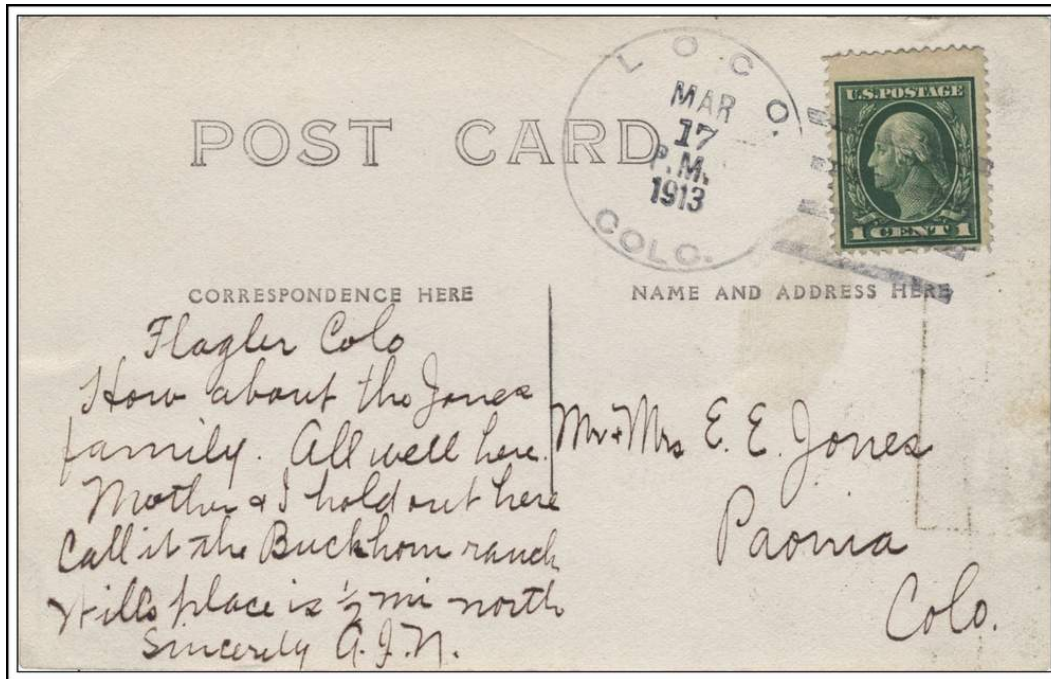 LOCO.
MAR
17
P.M.
1913
COLO.
U.S. POSTAGE
1 CENT 1
POST CARD
CORRESPONDENCE HERE
Flagler Colo
How about the Jones
family. All well here.
Mother & I hold out here
Call it the Buckhorn ranch
Wills place is 1/2 mi north
Sincerely A.J.N.
NAME AND ADDRESS HERE
Mr + Mrs E. E. Jones
Paonia
Colo.